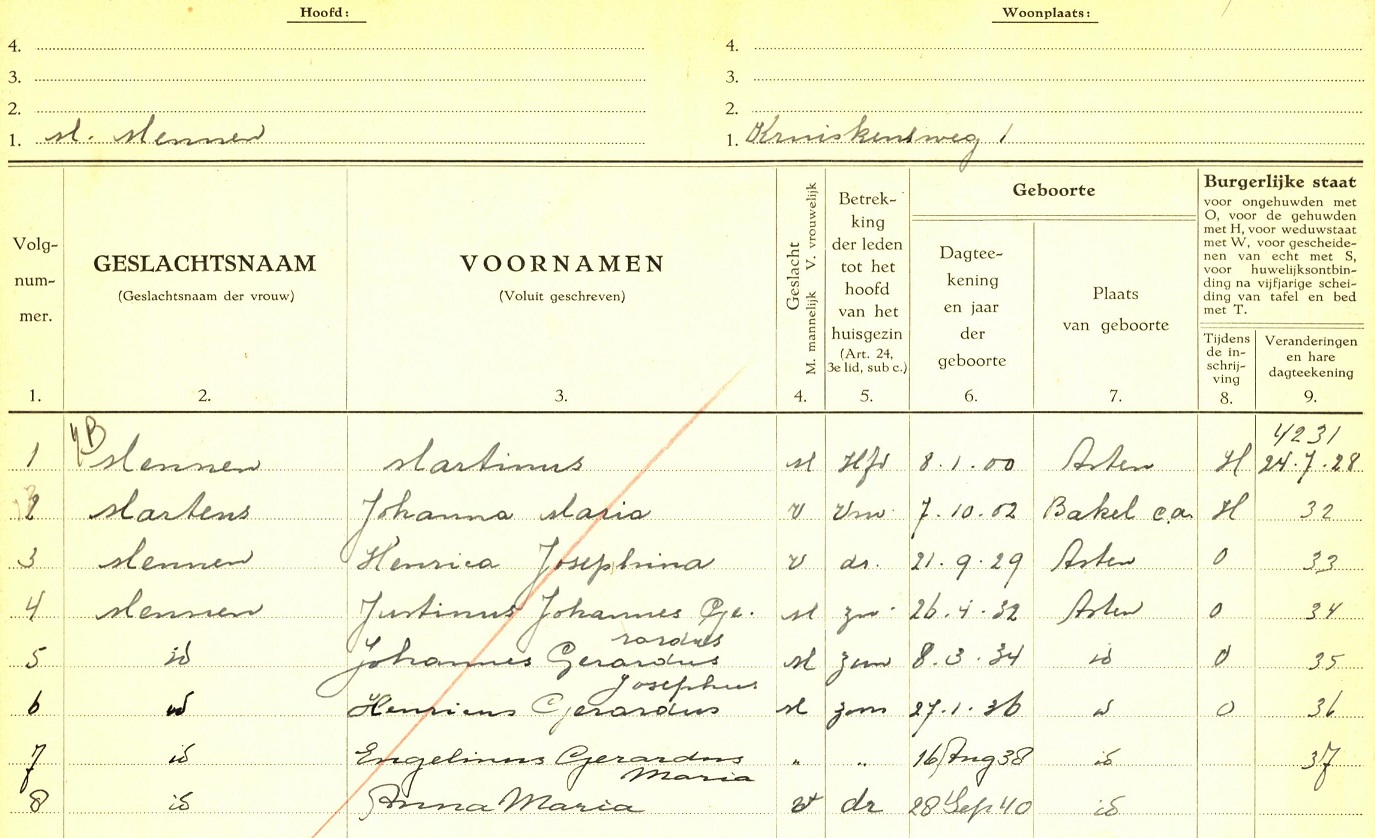 Hoofd: Woonplaats:
4. 4.
3. 3.
2. 2.
1. M. Mennen 1. Kruiskensweg 1
Volg-
num-
mer.
1.
GESLACHTSNAAM
(Geslachtsnaam der vrouw)
2.
VOORNAMEN
(Voluit geschreven)
3.
Geslacht
M. mannelijk V. vrouwelijk
4.
Betrek-
king
der leden
tot het
hoofd
van het
huisgezin
(Art. 24,
3e lid, sub c.)
5.
Geboorte
Dagtee-
kening
en jaar
der
geboorte
6.
Plaats
van geboorte
7.
Burgerlijke staat
voor ongehuwden met
O, voor de gehuwden
met H, voor weduwstaat
met W, voor gescheide-
nen van echt met S,
voor huwelijksontbin-
ding na vijfjarige schei-
ding van tafel en bed
met T.
Tijdens
de in-
schrij-
ving
8.
Veranderingen
en hare
dagteekening
9.
4231
1 Mennen Martinus M Hfd 8.1.00 Asten H 24.7.28
2 Martens Johanna Maria V Vrw 7.10.02 Bakel c.a. H 32
3 Mennen Henrica Josephina V dr. 21.9.29 Asten O 33
4 Mennen Justinus Johannes Ge- M zn 26.4.32 Asten O 34
rardus
5 id Johannes Gerardus M zoon 8.3.34 id O 35
Josephus
6 id Henricus Gerardus M zoon 27.1.36 id O 36
7 id Engelinus Gerardus " " 16 Aug 38 id 37
Maria
8 id Anna Maria v dr 28 Sep 40 id